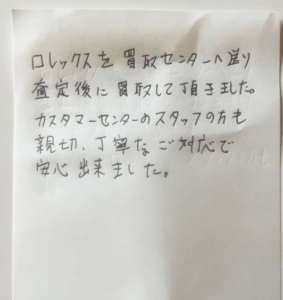 ロレックスを買取センターへ送り
査定後に買取して頂きました。
カスタマーセンターのスタッフの方も
親切、丁寧なご対応で
安心出来ました。